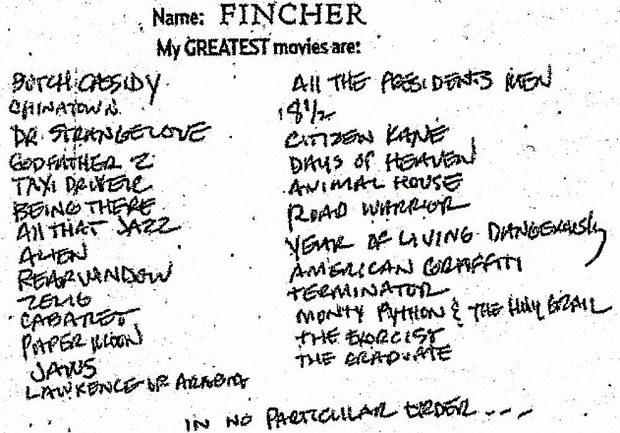 Name: FINCHER
My GREATEST movies are:
BUTCH CASSIDY
CHINATOWN
DR. STRANGELOVE
GODFATHER 2
TAXI DRIVER
BEING THERE
All THAT JAZZ
ALIEN
REAR WINDOW
ZELIG
CABARET
PAPER MOON
JAWS
LAWRENCE OF ARABIA
All THE PRESIDENTS MEN
8 1/2
CITIZEN KANE
DAYS OF HEAVEN
ANIMAL HOUSE
ROAD WARRIOR
YEAR OF LIVING DANGEROUSLY
AMERICAN GRAFFITI
TERMINATOR
MONTY PYTHON & THE HOLY GRAIL
THE EXORCIST
THE GRADUATE
IN NO PARTICULAR ORDER ---